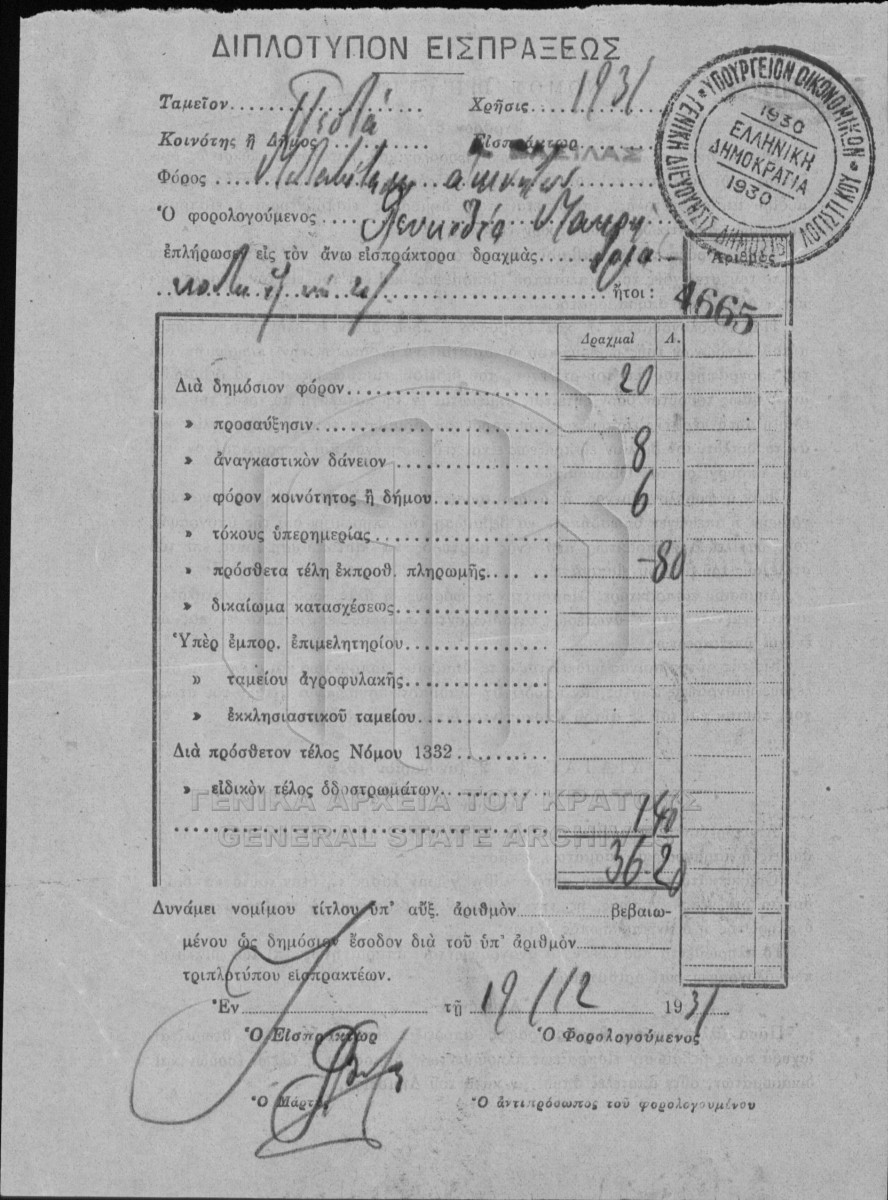 ΔΙΠΛΟΤΥΠΟΝ ΕΙΣΠΡΑΞΕΩΣ
Ταμεῖον Χρῆσις 1931
Κοινότης ἢ Δῆμος Εἰσπράκτωρ
Φόρος
Ὁ φορολογούμενος
ἐπλήρωσεν εἰς τὸν ἄνω εἰσπράκτορα δραχμὰς
ἤτοι:
ΥΠΟΥΡΓΕΙΟΝ ΟΙΚΟΝΟΜΙΚΩΝ
1930
ΕΛΛΗΝΙΚΗ
ΔΗΜΟΚΡΑΤΙΑ
1930
Ἀριθμὸς
4665
Δραχμαὶ Λ.
Διὰ δημόσιον φόρον 20
» προσαύξησιν
» ἀναγκαστικὸν δάνειον 8
» φόρον κοινότητος ἢ δήμου 6
» τόκους ὑπερημερίας
» πρόσθετα τέλη ἐκπροθ. πληρωμῆς -80
» δικαίωμα κατασχέσεως
Ὑπὲρ ἐμπορ. ἐπιμελητηρίου
» ταμείου ἀγροφυλακῆς
» ἐκκλησιαστικοῦ ταμείου
Διὰ πρόσθετον τέλος Νόμου 1332
» εἰδικὸν τέλος ὁδοστρωμάτων
ΓΕΝΙΚΑ ΑΡΧΕΙΑ ΤΟΥ ΚΡΑΤΟΥΣ
1 40
GENERAL STATE ARCHIVES
36 20
Δυνάμει νομίμου τίτλου ὑπ' αὔξ. ἀριθμὸν βεβαιω-
μένου ὡς δημόσιον ἔσοδον διὰ τοῦ ὑπ' ἀριθμὸν
τριπλοτύπου εἰσπρακτέων.
Ἐν τῇ 19/12 1931
Ὁ Εἰσπράκτωρ Ὁ Φορολογούμενος
Ὁ Μάρτυς Ὁ ἀντιπρόσωπος τοῦ φορολογουμένου